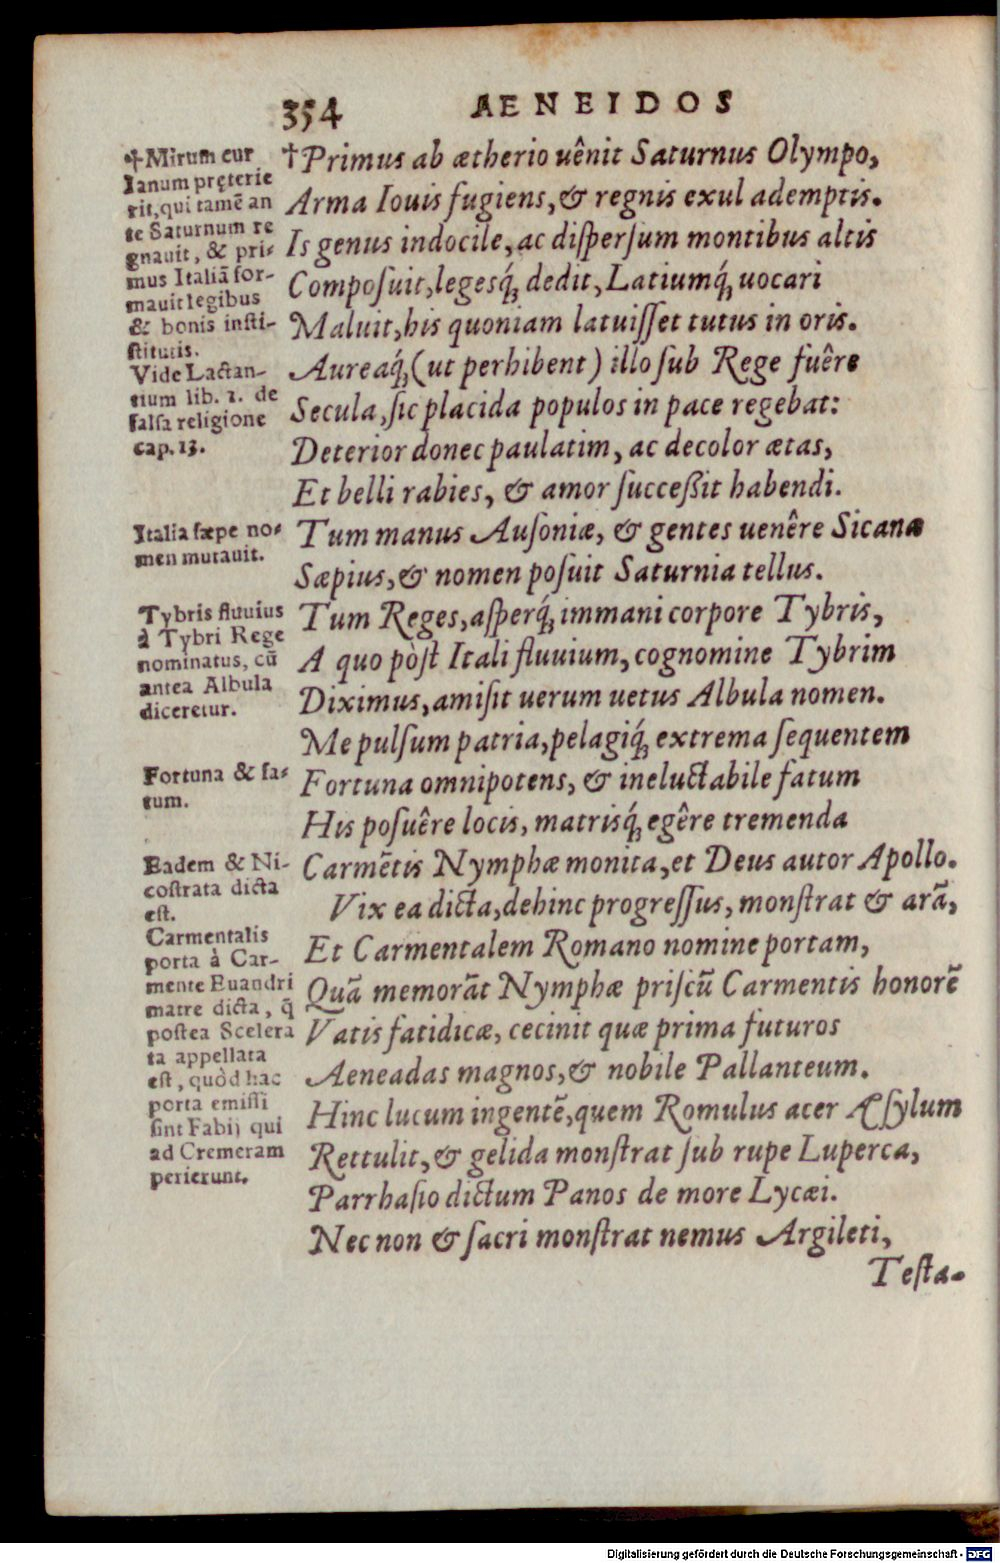 354 AENEIDOS
†Mirum cur
Ianum pręterie
rit, qui tamē an
te Saturnum re
gnauit, & pri-
mus Italiā for-
mauit legibus
& bonis insti-
stitutis.
Vide Lactan-
tium lib. 1. de
falsa religione
cap. 13.
Italia sæpe no-
men mutauit.
Tybris fluuius
à Tybri Rege
nominatus, cū
antea Albula
diceretur.
Fortuna & fa-
tum.
Eadem & Ni-
costrata dicta
est.
Carmentalis
porta à Car-
mente Euandri
matre dicta, q̄
postea Scelera
ta appellata
est, quòd hac
porta emissi
sint Fabij qui
ad Cremeram
perierunt.
†Primus ab ætherio uênit Saturnus Olympo,
Arma Iouis fugiens, & regnis exul ademptis.
Is genus indocile, ac dispersum montibus altis
Composuit, legesq́; dedit, Latiumq́; uocari
Maluit, his quoniam latuisset tutus in oris.
Aureaq́; (ut perhibent) illo sub Rege fuêre
Secula, sic placida populos in pace regebat:
Deterior donec paulatim, ac decolor ætas,
Et belli rabies, & amor successit habendi.
Tum manus Ausoniæ, & gentes uenêre Sicanæ
Sæpius, & nomen posuit Saturnia tellus.
Tum Reges, asperq́; immani corpore Tybris,
A quo pòst Itali fluuium, cognomine Tybrim
Diximus, amisit uerum uetus Albula nomen.
Me pulsum patria, pelagiq́; extrema sequentem
Fortuna omnipotens, & ineluctabile fatum
His posuêre locis, matrisq́; egêre tremenda
Carmētis Nymphæ monita, et Deus autor Apollo.
Vix ea dicta, dehinc progressus, monstrat & arā,
Et Carmentalem Romano nomine portam,
Quā memorāt Nymphæ priscū Carmentis honorē
Vatis fatidicæ, cecinit quæ prima futuros
Aeneadas magnos, & nobile Pallanteum.
Hinc lucum ingentē, quem Romulus acer Æsylum
Rettulit, & gelida monstrat sub rupe Luperca,
Parrhasio dictum Panos de more Lycæi.
Nec non & sacri monstrat nemus Argileti,
Testa-
Digitalisierung gefördert durch die Deutsche Forschungsgemeinschaft - DFG